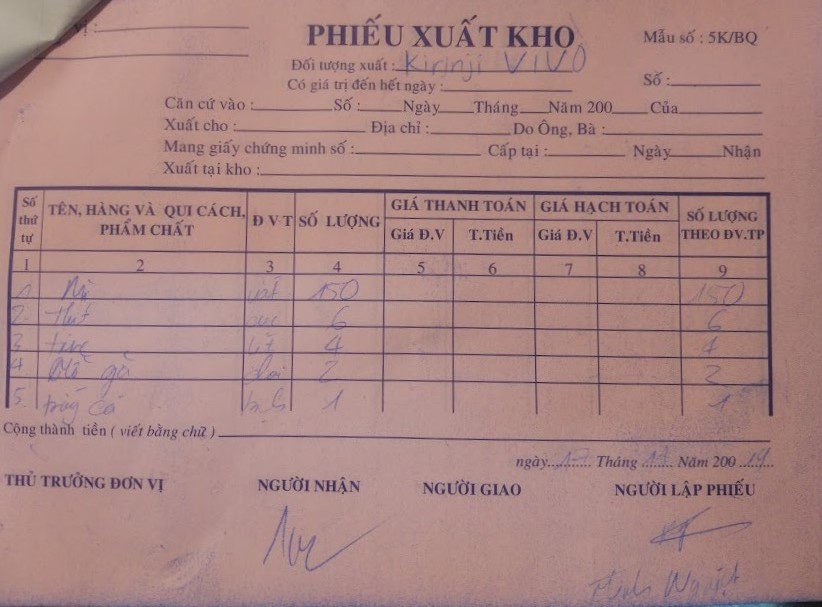 vị :
PHIẾU XUẤT KHO
Mẫu số : 5K/BQ
Đối tượng xuất : Kirinji VIVO
Có giá trị đến hết ngày :
Số :
Căn cứ vào : Số : Ngày Tháng Năm 200 Của
Xuất cho : Địa chỉ : Do Ông, Bà :
Mang giấy chứng minh số : Cấp tại : Ngày Nhận
Xuất tại kho :
Số thứ tự TÊN, HÀNG VÀ QUI CÁCH, PHẨM CHẤT Đ V T SỐ LƯỢNG GIÁ THANH TOÁN GIÁ HẠCH TOÁN SỐ LƯỢNG THEO ĐV.TP
Giá Đ.V T.Tiền Giá Đ.V T.Tiền
1 2 3 4 5 6 7 8 9
1. Mì 150 150
2. 6 6
3. 4 4
4. gà 2 2
5. trứng cá 1 1
Cộng thành tiền ( viết bằng chữ )
ngày 17 Tháng Năm 200 19
THỦ TRƯỞNG ĐƠN VỊ NGƯỜI NHẬN NGƯỜI GIAO NGƯỜI LẬP PHIẾU